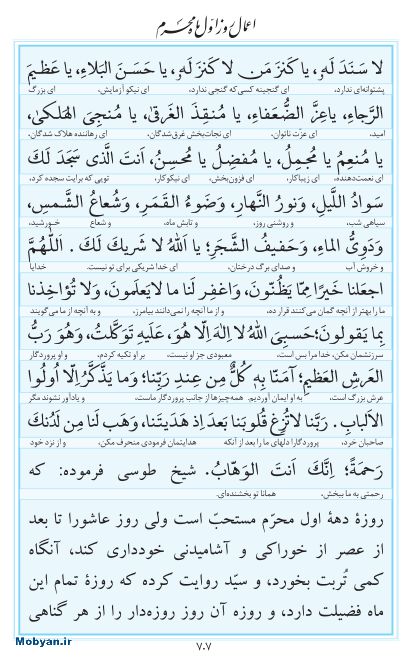 اعمال روز اوّل ماه محرّم
لا سَنَدَ لَهُ، يا كَنزَ مَن لا كَنزَ لَهُ، يا حَسَنَ البَلاءِ، يا عَظيمَ
پشتوانه‌ای ندارد، ای گنجینه کسی که گنجی ندارد، ای نیکو آزمایش، ای بزرگ
الرَّجاءِ، ياعِزَّ الضُّعَفاءِ، يا مُنقِذَ الغَرقىٰ، يا مُنجِيَ الهَلكىٰ،
امید، ای عزت ناتوان، ای نجات‌بخش غرق‌شدگان، ای رهاننده هلاک شدگان،
يا مُنعِمُ يا مُجمِلُ، يا مُفضِلُ يا مُحسِنُ، اَنتَ الَّذى سَجَدَ لَكَ
ای نعمت‌دهنده، ای زیباکار، ای فزون‌بخش، ای نیکوکار، تویی که برایت سجده کرد،
سَوادُ اللَّيلِ، وَنورُ النَّهارِ، وَضَوءُ القَمَرِ، وَشُعاعُ الشَّمسِ،
سیاهی شب، و روشنی روز، و تابش ماه، و شعاع خورشید،
وَدَوِىُّ الماءِ، وَحَفيفُ الشَّجَرِ؛ يا اَللهُ لا شَريكَ لَكَ . اَللّٰهُمَّ
و خروش آب و صدای برگ درختان، ای خدا شریکی برای تو نیست. خدایا
اجعَلنا خَيرًا مِمّا يَظُنّونَ، وَاغفِر لَنا ما لايَعلَمونَ، وَلا تُؤاخِذنا
ما را بهتر از آنچه گمان می‌کنند قرار ده، و از ما آنچه را نمی‌دانند بیامرز، و به آنچه از ما می‌گویند
بِما يَقولونَ؛حَسبِىَ اللهُ لا اِلٰهَ اِلّا هُوَ، عَلَيهِ تَوَكَّلتُ، وَهُوَ رَبُّ
سرزنشمان مکن، خدا مرا بس است، معبودی جز او نیست، بر او تکیه کردم، و او پروردگار
العَرشِ العَظيمِ؛ آمَنّا بِهِ كُلٌّ مِن عِندِ رَبِّنا؛ وَما يَذَّكَّرُ اِلّا اُولُوا
عرش بزرگ است، به او ایمان آوردیم. همه‌چیزها از جانب پروردگار ماست، و یادآور نشوند مگر
الاَلبابِ . رَبَّنا لاتُزِغ قُلوبَنا بَعدَ اِذ هَدَيتَنا، وَهَب لَنا مِن لَدُنكَ
صاحبان خرد، پروردگارا دلهای ما را بعد از آنکه هدایتمان فرمودی منحرف مکن، و از نزد خود
رَحمَةً؛ اِنَّكَ اَنتَ الوَهّابُ. شیخ طوسی فرموده: که
رحمتی به ما ببخش، همانا تو بخشنده‌ای.
روزهٔ دههٔ اول محرّم مستحبّ است ولی روز عاشورا تا بعد
از عصر از خوراکی و آشامیدنی خودداری کند، آنگاه
کمی تُربت بخورد، و سیّد روایت کرده که روزهٔ تمام این
ماه فضیلت دارد، و روزه آن روز روزه‌دار را از هر گناهی
۷۰۷
Mobyan.ir